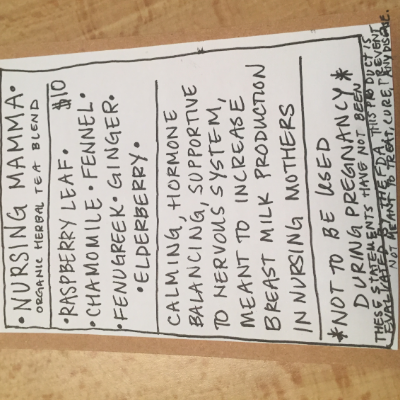 • NURSING MAMMA •
ORGANIC HERBAL TEA BLEND
$10
• RASPBERRY LEAF •
• CHAMOMILE • FENNEL •
• FENUGREEK • GINGER •
• ELDERBERRY •
CALMING, HORMONE
BALANCING, SUPPORTIVE
TO NERVOUS SYSTEM,
MEANT TO INCREASE
BREAST MILK PRODUCTION
IN NURSING MOTHERS
*NOT TO BE USED
DURING PREGNANCY*
THESE STATEMENTS HAVE NOT BEEN
EVALUATED BY THE FDA. THIS PRODUCT IS
NOT MEANT TO TREAT, CURE, PREVENT
ANY DISEASE.